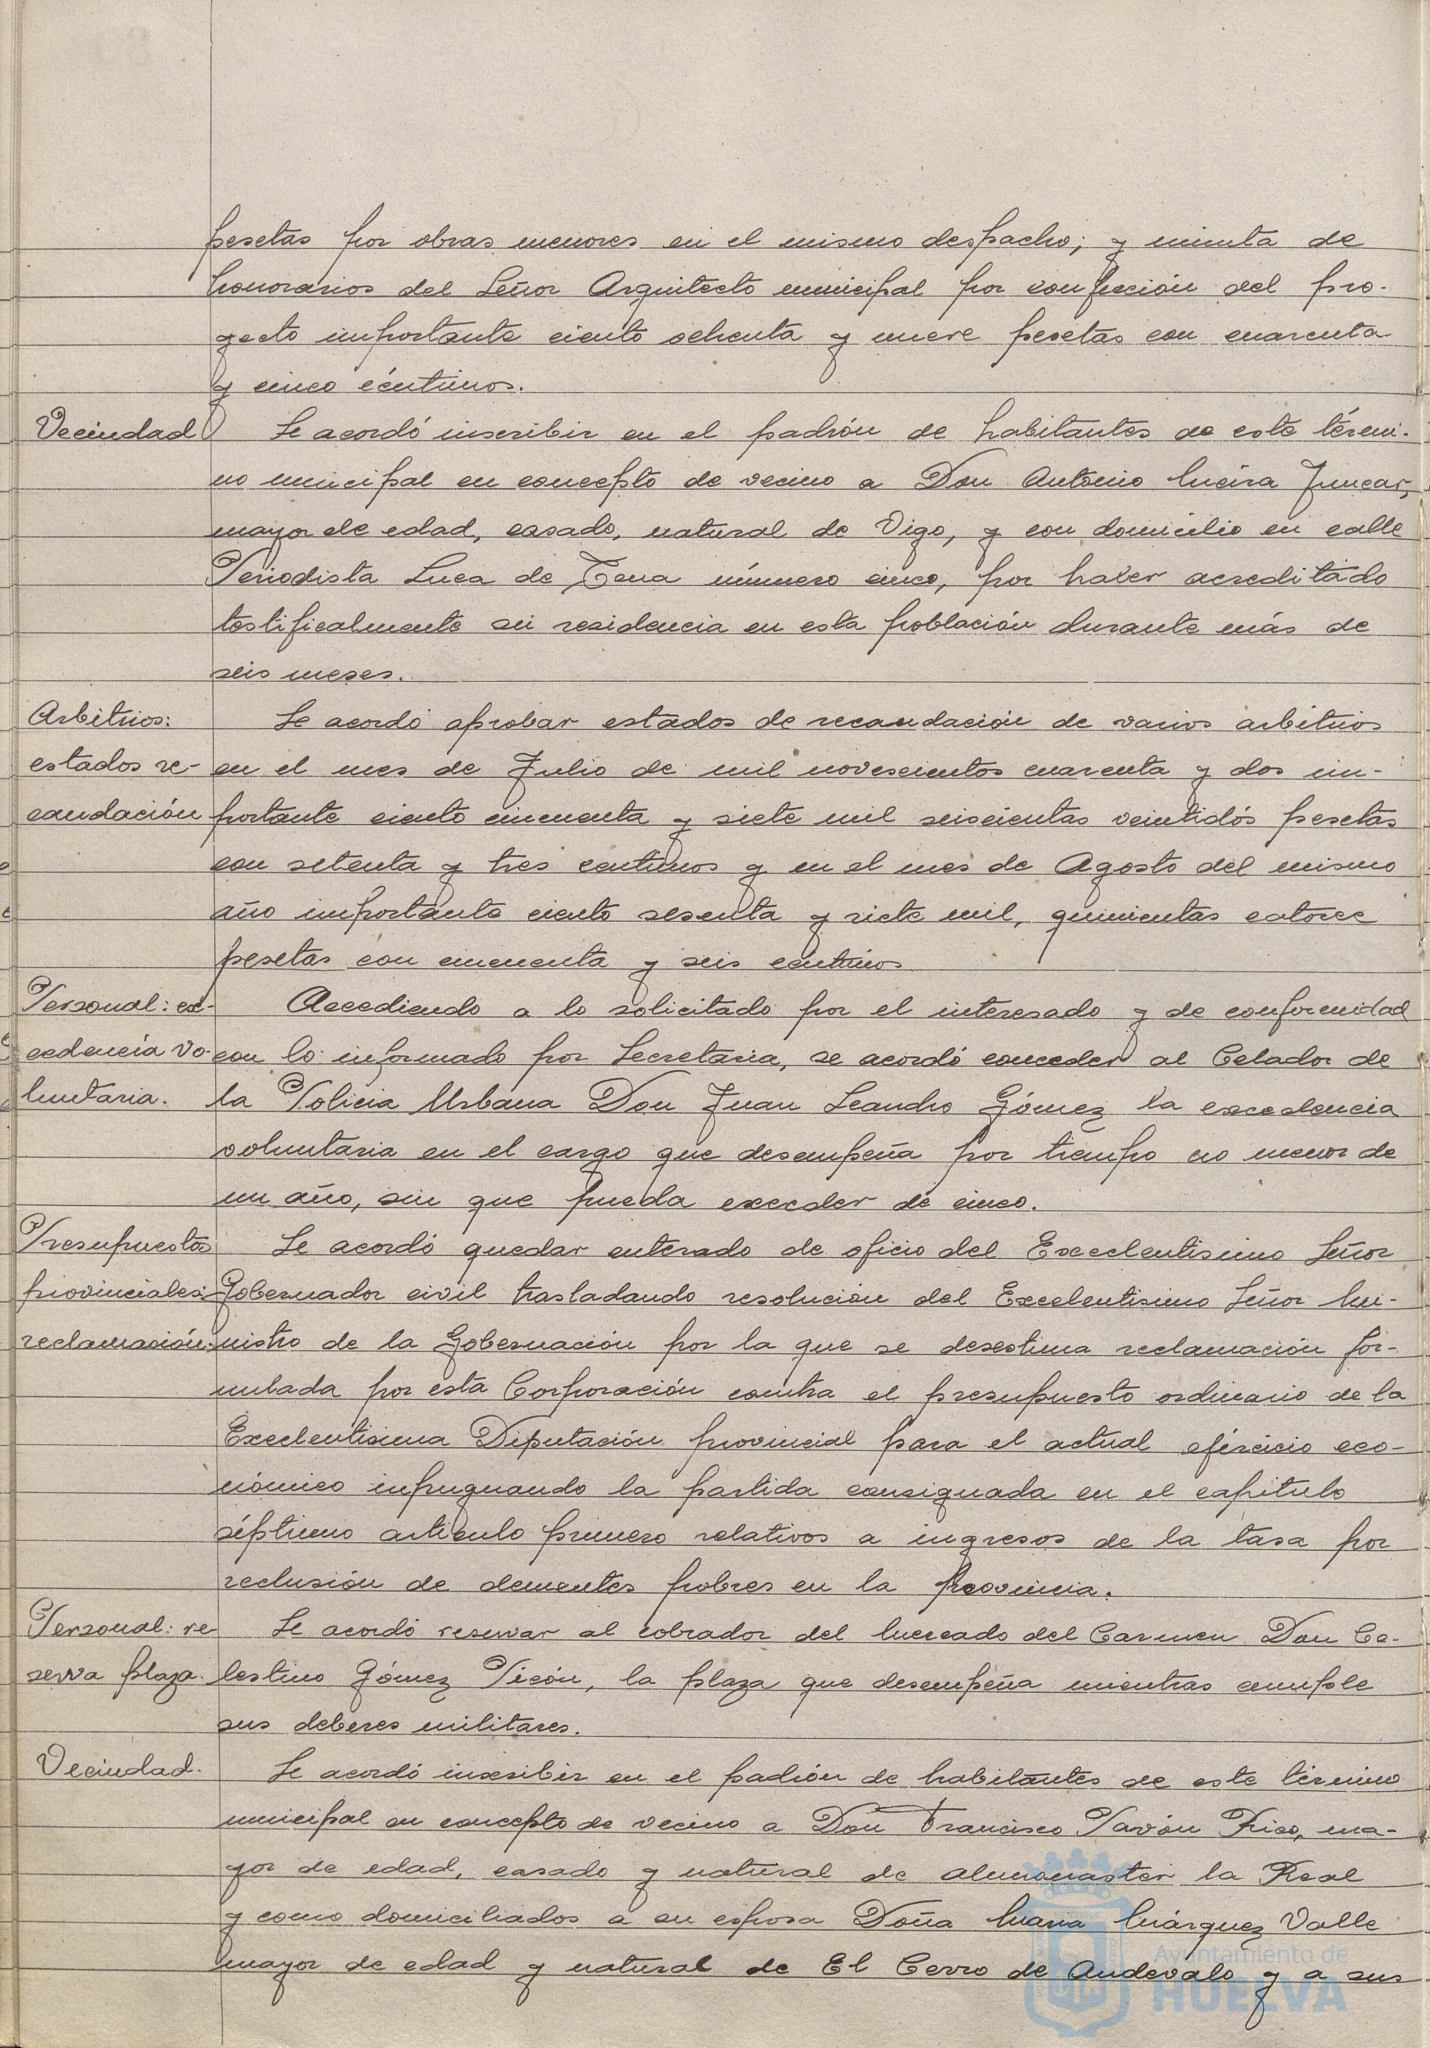 pesetas por obras menores en el mismo despacho; y minuta de
honorarios del Señor Arquitecto municipal por confección del pro-
yecto importante ciento ochenta y nueve pesetas con cuarenta
y cinco céntimos.
Vecindad
Se acordó inscribir en el padrón de habitantes de este térmi-
no municipal en concepto de vecino a Don Antonio Meira Juncar,
mayor de edad, casado, natural de Vigo, y con domicilio en calle
Periodista Luca de Tena número cinco, por haber acreditado
testificalmente su residencia en esta población durante más de
seis meses.
Arbitrios:
estados re-
caudación
Se acordó aprobar estados de recaudación de varios arbitrios
en el mes de Julio de mil novescientos cuarenta y dos im-
portante ciento cincuenta y siete mil seiscientas veintidós pesetas
con setenta y tres centimos y en el mes de Agosto del mismo
año importante ciento sesenta y siete mil, quinientas catorce
pesetas con cincuenta y seis centimos
Personal: ex-
cedencia vo-
luntaria.
Accediendo a lo solicitado por el interesado y de conformidad
con lo informado por Secretaria, se acordó conceder al Celador de
la Policia Urbana Don Juan Leandro Gómez la excedencia
voluntaria en el cargo que desempeña por tiempo no menor de
un año, sin que pueda exceder de cinco.
Presupuestos
provinciales:
reclamación:
Se acordó quedar enterado de oficio del Excelentisimo Señor
Gobernador civil trasladando resolución del Excelentisimo Señor Mi-
nistro de la Gobernación por la que se desestima reclamación for-
mulada por esta Corporación contra el presupuesto ordinario de la
Excelentisima Diputación provincial para el actual ejercicio eco-
nómico inpugnando la partida consignada en el capitulo
séptimo articulo primero relativos a ingresos de la tasa por
reclusión de dementes pobres en la provincia.
Personal: re-
serva plaza.
Se acordó reservar al cobrador del Mercado del Carmen Don Ce-
lestino Gómez Picón, la plaza que desempeña mientras cumple
sus deberes militares.
Vecindad.
Se acordó inscribir en el padrón de habitantes de este término
municipal en concepto de vecino a Don Francisco Pavón Rico, ma-
yor de edad, casado y natural de Almonaster la Real
y como domiciliados a su esposa Doña Maria Márquez Valle
mayor de edad y natural de El Cerro de Andevalo y a sus
Ayuntamiento de
HUELVA